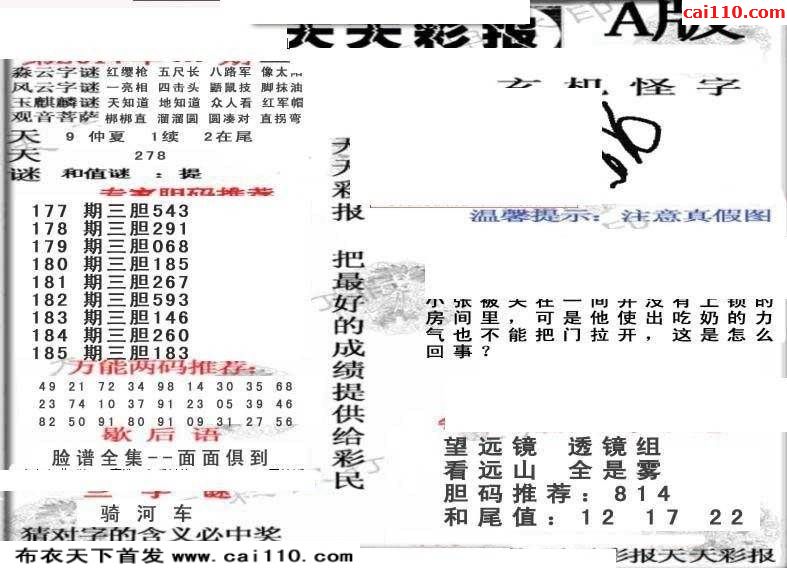 天天彩报】 A版
cai110.com
森云字谜 红缨枪 五尺长 八路军 像太阳
风云字谜 一亮相 四击头 鼯鼠技 脚抹油
玉麒麟谜 天知道 地知道 众人看 红军帽
观音菩萨 梆梆直 溜溜圆 圆凑对 直拐弯
天 9 仲夏 1续 2在尾
天 278
谜 和值谜 ：提
专家胆码推荐
177 期三胆543
178 期三胆291
179 期三胆068
180 期三胆185
181 期三胆267
182 期三胆593
183 期三胆146
184 期三胆260
185 期三胆183
万能两码推荐:
49 21 72 34 98 14 30 35 68
23 74 10 37 91 23 05 39 46
82 50 91 80 91 09 31 27 56
歇后语
脸谱全集--面面俱到
三字谜
骑河车
猜对字的含义必中奖
布衣天下首发 www.cai110.com
天天彩报 把最好的成绩提供给彩民
玄机怪字
温馨提示：注意真假图
小张被关在一间并没有上锁的
房间里，可是他使出吃奶的力
气也不能把门拉开，这是怎么
回事？
望远镜 透镜组
看远山 全是雾
胆码推荐：814
和尾值：12 17 22
彩报天天彩报